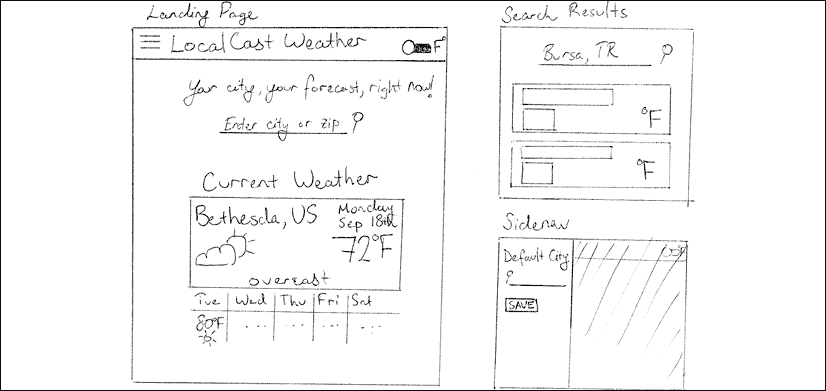 Landing Page
LocalCast Weather
F°
Your city, your forecast, right now!
Enter city or zip
Current Weather
Bethesda, US
Monday
Sep 18th
72°F
overcast
Tue Wed Thu Fri Sat
80°F ... ... ... ...
Search Results
Bursa, TR
°F
°F
Sidenav
°F
Default City
SAVE